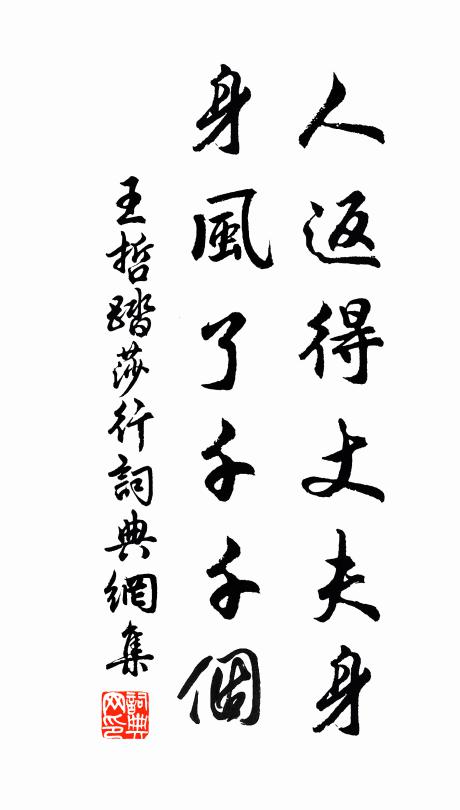 人返得丈夫身
身風了千千個
王哲踏莎行詞典網集
詞典網印